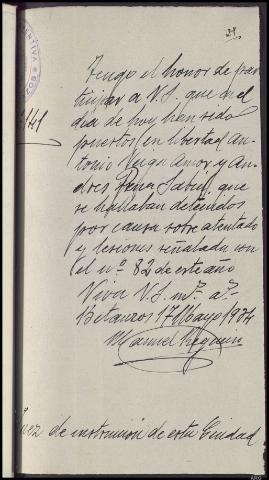 29
Tengo el honor de par-
ticipar a V.S. que en el
dia de hoy han sido
puestos en libertad An-
tonio Veiga Amor y An-
dres Pena Sabin, que
se hallaban detenidos
por causa sobre atentado
y lesiones señalada con
el nº 82 de este año
Viva V.S. mº. aº.
Betanzos 17 Mayo 1934
Manuel
141
Juez de instrucción de esta Ciudad